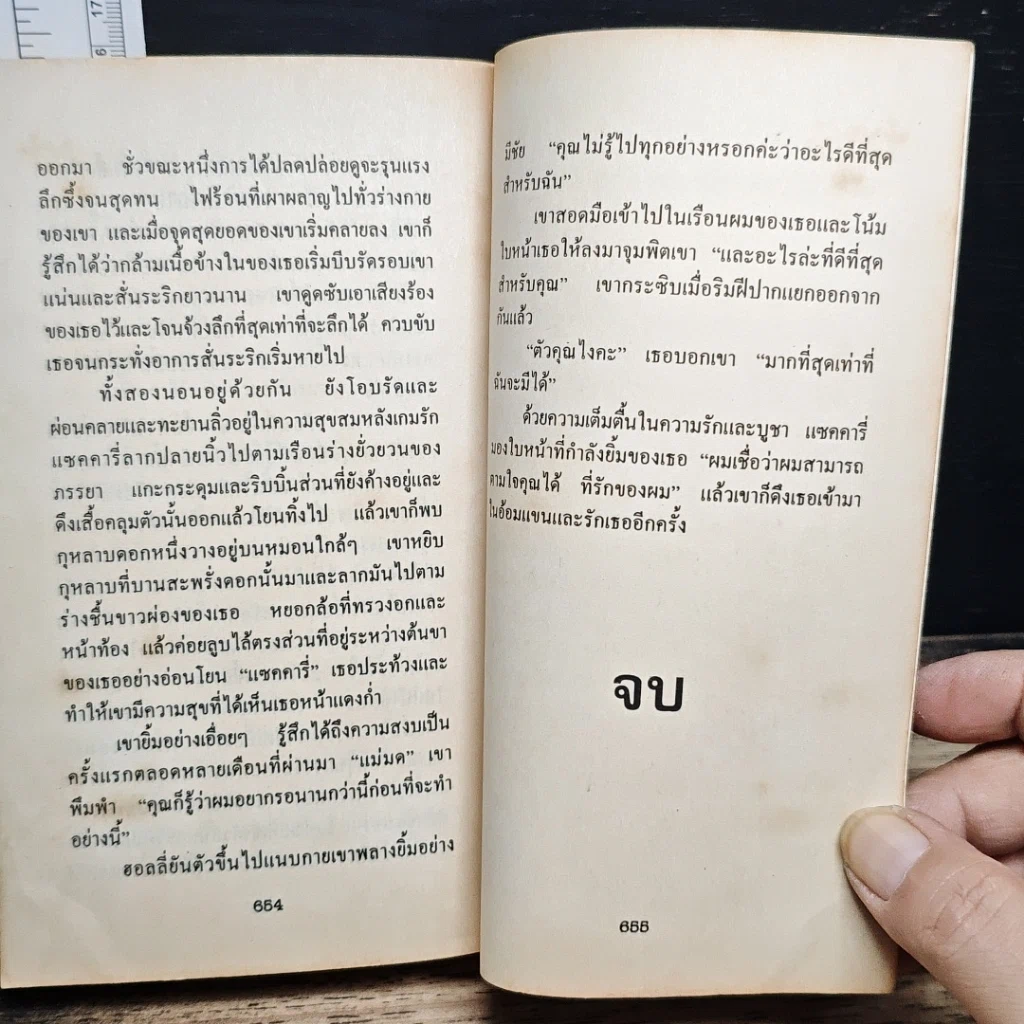 17
6
ออกมา ชั่วขณะหนึ่งการได้ปลดปล่อยดูจะรุนแรง
ลึกซึ้งจนสุดทน ไฟร้อนที่เผาผลาญไปทั่วร่างกาย
ของเขา และเมื่อจุดสุดยอดของเขาเริ่มคลายลง เขาก็
รู้สึกได้ว่ากล้ามเนื้อข้างในของเธอเริ่มบีบรัดรอบเขา
แน่นและสั่นระริกยาวนาน เขาดูดซับเอาเสียงร้อง
ของเธอไว้และโจนจ้วงลึกที่สุดเท่าที่จะลึกได้ ควบขับ
เธอจนกระทั่งอาการสั่นระริกเริ่มหายไป
ทั้งสองนอนอยู่ด้วยกัน ยังโอบรัดและ
ผ่อนคลายและทะยานลิ่วอยู่ในความสุขสมหลังเกมรัก
แซคคารี่ลากปลายนิ้วไปตามเรือนร่างยั่วยวนของ
ภรรยา แกะกระดุมและริบบิ้นส่วนที่ยังค้างอยู่และ
ดึงเสื้อคลุมตัวนั้นออกแล้วโยนทิ้งไป แล้วเขาก็พบ
กุหลาบดอกหนึ่งวางอยู่บนหมอนใกล้ๆ เขาหยิบ
กุหลาบที่บานสะพรั่งดอกนั้นมาและลากมันไปตาม
ร่างชื้นขาวผ่องของเธอ หยอกล้อที่ทรวงอกและ
หน้าท้อง แล้วค่อยลูบไล้ตรงส่วนที่อยู่ระหว่างต้นขา
ของเธออย่างอ่อนโยน “แซคคารี่” เธอประท้วงและ
ทำให้เขามีความสุขที่ได้เห็นเธอหน้าแดงก่ำ
เขายิ้มอย่างเอื่อยๆ รู้สึกได้ถึงความสงบเป็น
ครั้งแรกตลอดหลายเดือนที่ผ่านมา “แม่มด” เขา
พึมพำ “คุณก็รู้ว่าผมอยากรอนานกว่านี้ก่อนที่จะทำ
อย่างนี้”
ฮอลลี่ยันตัวขึ้นไปแนบกายเขาพลางยิ้มอย่าง
654
มีชัย “คุณไม่รู้ไปทุกอย่างหรอกค่ะว่าอะไรดีที่สุด
สำหรับฉัน”
เขาสอดมือเข้าไปในเรือนผมของเธอและโน้ม
ใบหน้าเธอให้ลงมาจุมพิตเขา “และอะไรล่ะที่ดีที่สุด
สำหรับคุณ” เขากระซิบเมื่อริมฝีปากแยกออกจาก
กันแล้ว
“ตัวคุณไงคะ” เธอบอกเขา “มากที่สุดเท่าที่
ฉันจะมีได้”
ด้วยความเต็มตื้นในความรักและบูชา แซคคารี่
มองใบหน้าที่กำลังยิ้มของเธอ “ผมเชื่อว่าผมสามารถ
ตามใจคุณได้ ที่รักของผม” แล้วเขาก็ดึงเธอเข้ามา
ในอ้อมแขนและรักเธออีกครั้ง
จบ
655